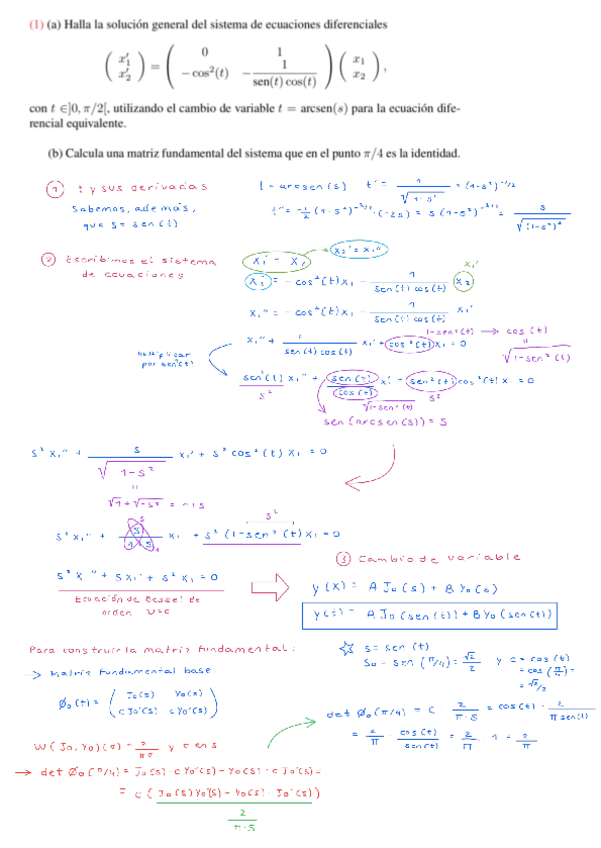 (1) (a) Halla la solución general del sistema de ecuaciones diferenciales
( x₁' x₂' ) = ( 0 1 −cos²(t) −1/(sen(t) cos(t)) ) ( x₁ x₂ ),
con t ∈]0, π/2[, utilizando el cambio de variable t = arcsen(s) para la ecuación dife-
rencial equivalente.
(b) Calcula una matriz fundamental del sistema que en el punto π/4 es la identidad.
① t y sus derivadas
Sabemos, además,
que s = sen(t)
t = arcsen(s) t' = 1/√(1-s²) = (1-s²)^(-1/2)
t'' = -1/2 (1-s²)^(-3/2) · (-2s) = s(1-s²)^(-3/2) = s/√((1-s²)³)
② Escribimos el sistema
de ecuaciones
x₁' = x₂ → x₂' = x₁''
x₂' = - cos²(t) x₁ - 1/(sen(t) cos(t)) x₂ x₁'
x₁'' = - cos²(t) x₁ - 1/(sen(t) cos(t)) x₁'
x₁'' + 1/(sen(t) cos(t)) x₁' + cos²(t) x₁ = 0
1-sen²(t) → cos(t)
=
√(1-sen²(t))
Multiplicar
por sen²(t)
sen²(t) x₁'' + sen(t)/cos(t) x₁' + sen²(t) cos²(t) x = 0
s² s²
√(1-sen²(t))
sen(arcsen(s)) = s
s² x₁'' + s/√(1-s²) x₁' + s² cos²(t) x₁ = 0
s²
s² x₁'' + x₁ + s² (1-sen²(t)) x₁ = 0
s² x'' + s x₁' + s² x₁ = 0
Ecuación de Bessel de
orden
③ Cambio de variable
y(x) = A J₀(s) + B Y₀(s)
y(t) = A J₀(sen(t)) + B Y₀(sen(t))
Para construir la matriz fundamental:
→ Matriz fundamental base
Ø₀(t) = ( J₀(s) Y₀(s) c J₀'(s) c Y₀'(s) )
☆ s = sen(t)
s₀ = sen(π/4) = √2/2 y c = cos(t)
= cos(π/4) =
= √2/2
det Ø₀(π/4) = c 2/(π·s) = cos(t) · 2/(π sen(t))
= 2/π · cos(t)/sen(t) = 2/π · 1 = 2/π
W(J₀, Y₀)(σ) = 2/πσ y σ en s
→ det Ø₀(π/4) = J₀(s) · c Y₀'(s) - Y₀(s) · c J₀'(s) =
= c ( J₀(s) Y₀'(s) - Y₀(s) · J₀'(s) )
2/(π·s)